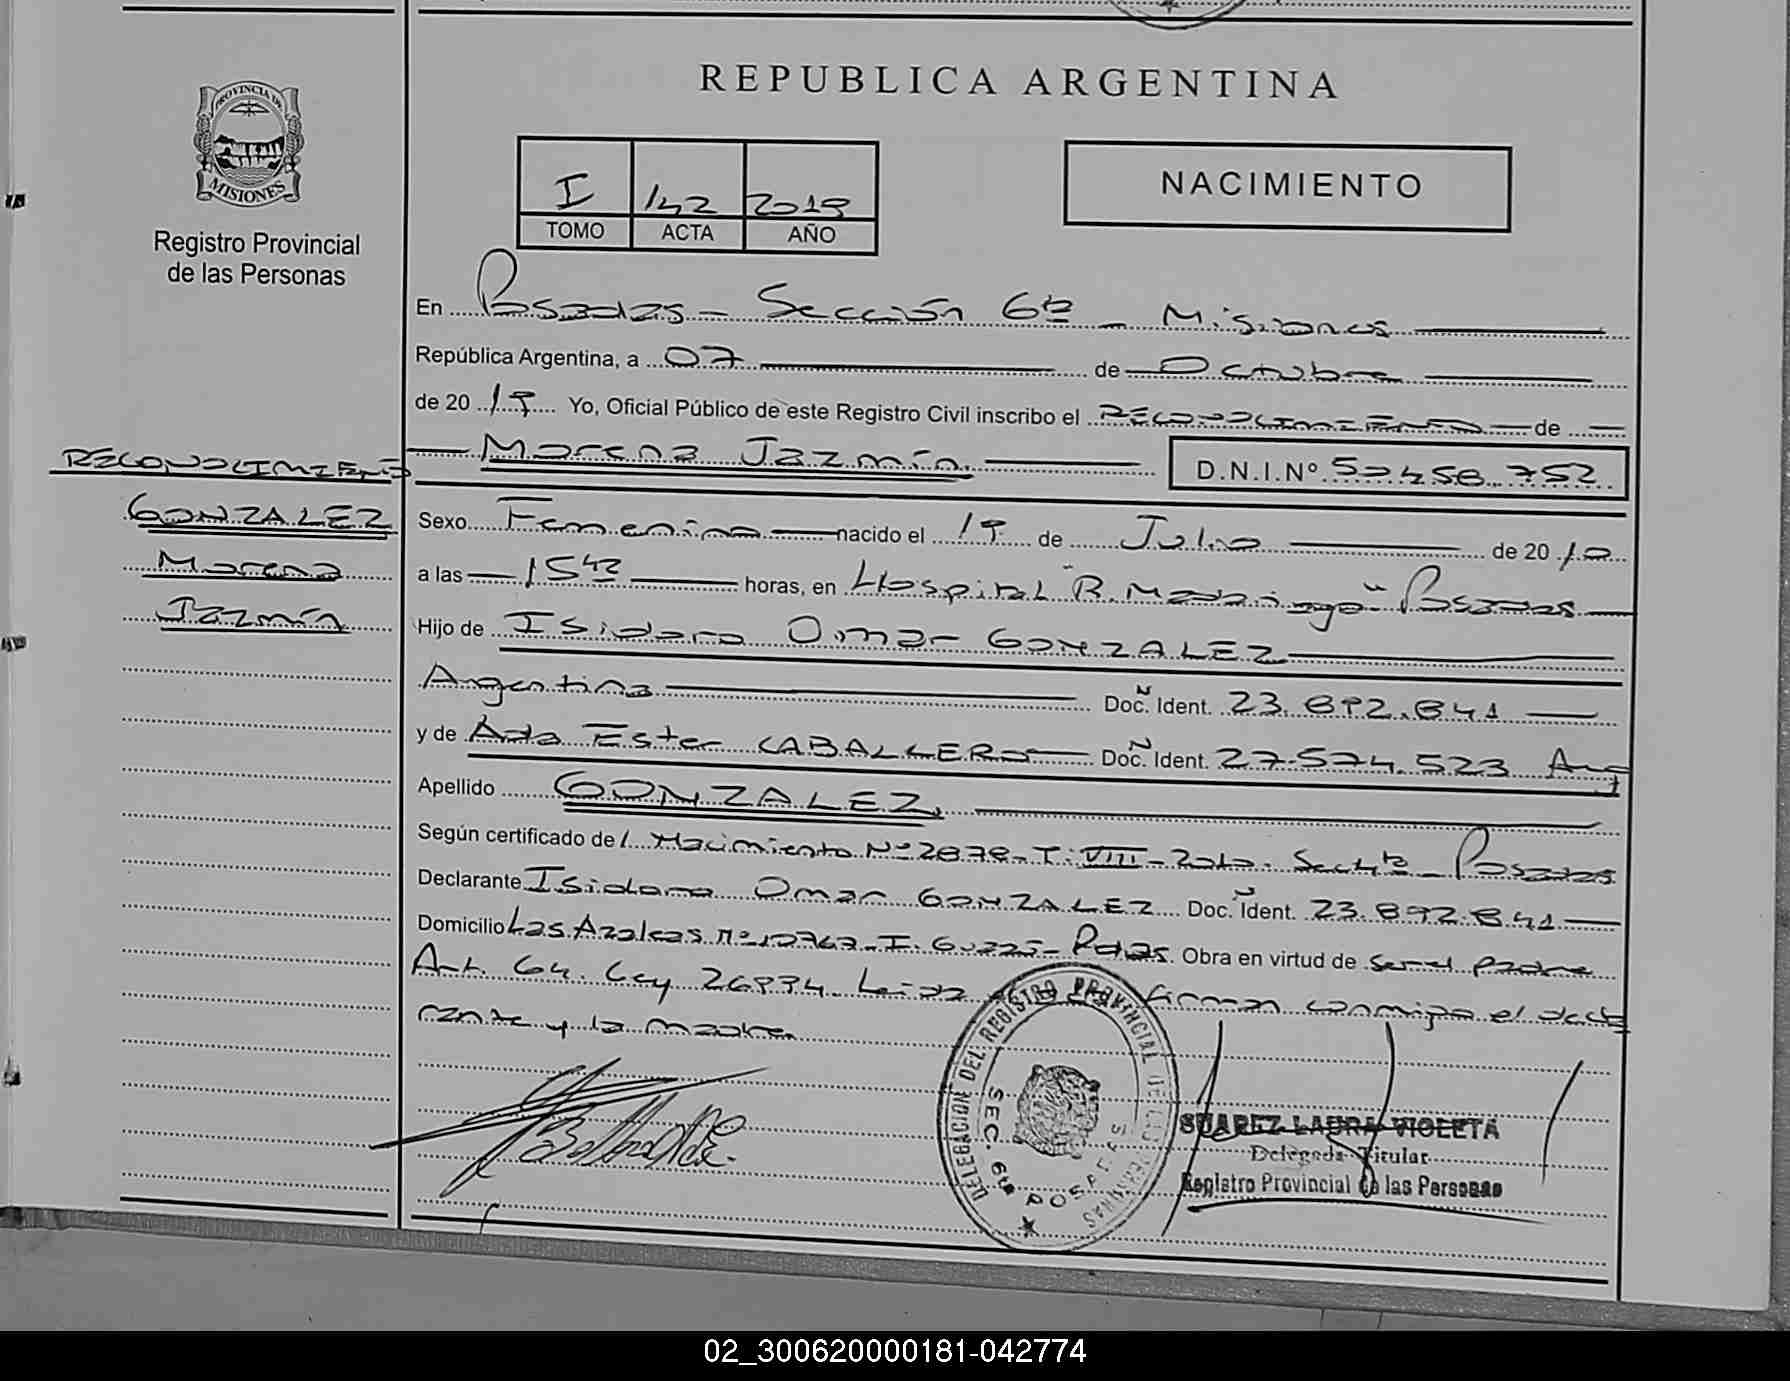 REPUBLICA ARGENTINA
PROVINCIA DE
MISIONES
Registro Provincial
de las Personas
I 142 2019
TOMO ACTA AÑO
NACIMIENTO
En Posadas - Sección 6ta - Misiones
República Argentina, a 07 de Octubre
de 20 19 Yo, Oficial Público de este Registro Civil inscribo el RECONOCIMIENTO de
Morena Jazmín D.N.I.Nº 52.458.752
RECONOCIMIENTO
GONZALEZ
Morena
Jazmín
Sexo Femenino nacido el 19 de Julio de 20 10
a las 15 42 horas, en Hospital "R. Madariaga" Posadas
Hijo de Isidoro Omar GONZALEZ
Argentina Doc. Ident. 23.892.841
y de Ada Ester CABALLERO Doc. Ident. 27.574.523 Arg
Apellido GONZALEZ
Según certificado de / Nacimiento Nº 2878 - T: VIII - 2010 - Secc 4ta - Posadas
Declarante Isidoro Omar GONZALEZ Doc. Ident. 23.892.841
Domicilio Las Azaleas Nº 10767 - I. Guazú - Pdas. Obra en virtud de ser el padre
Art. 64. Ley 26994. Leída firman conmigo el decla
rante y la madre.
DELEGACION DEL REGISTRO PROVINCIAL DE LAS PERSONAS
SEC. 6ta POSADAS
SUAREZ LAURA VIOLETA
Delegada Titular
Registro Provincial de las Personas
02_300620000181-042774